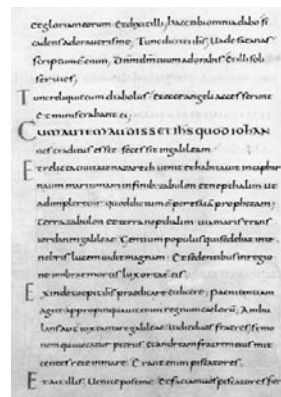 et gloriam eorum. Et dixit illi, haec tibi omnia dabo si
cadens adoraueris me. Tunc dicit ei ihs, Uade satanas
scriptum est enim, dnm dm tuum adorabis et illi soli
seruies,
Tunc reliquit eum diabolus et ecce angeli accesserunt
et ministrabant ei;
CUM AUTEM AUDISSET IHS QUOD IOHAN
nes traditus esset secessit in galileam
Et relicta ciuitate nazareth uenit et habitauit in caphar
naum maritimam in finib; zabulon et nepthalim ut
adimpleretur quod dictum e per esaiam prophetam;
Terra zabulon et terra nepthalim uia maris trans
iordanen galileae Gentium populus qui sedebat in te
nebris lucem uidit magnam. Et sedentibus in regio
ne umbrae mortis lux orta e eis.
Exinde coepit ihs praedicare et dicere; paenitentiam
agite appropinquauit enim regnum caeloru, Ambu
lans iuxta mare galileae Uidit duos fratres simo
nem qui uocatur petrus et andream fratrem eius mit
tentes rete in mare. Erant enim piscatores.
Et ait illis, Uenite post me. Et faciam uos piscatores fieri